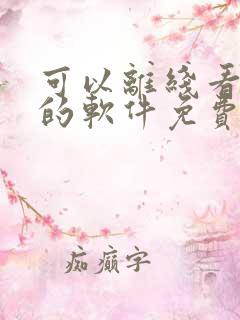 可以離綫看
的軟件免費
痴癲字